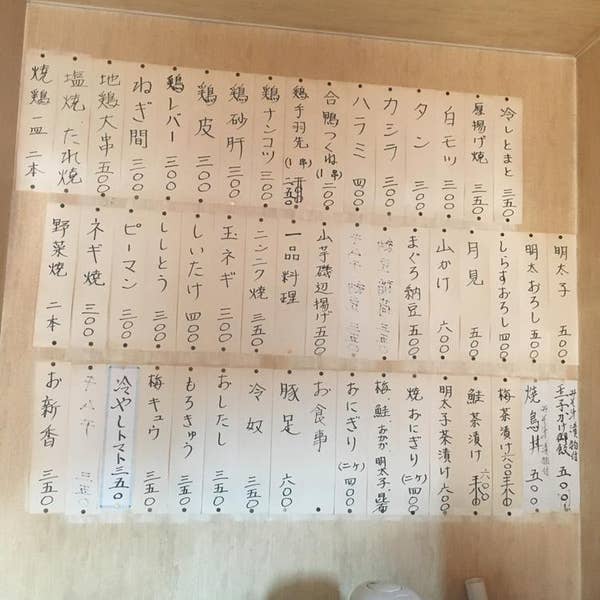 冷しとまと 三五〇
厚揚げ焼 三五〇
白モツ 三〇〇
タン 三〇〇
カシラ 三〇〇
ハラミ 四〇〇
合鴨つくね(1串) 二〇〇
鶏手羽先(1串)
鶏ナンコツ 三〇〇
鶏砂肝 三〇〇
鶏皮 三〇〇
鶏レバー 三〇〇
ねぎ間 三〇〇
地鶏大串 五〇〇
塩焼 たれ焼
焼鶏 一皿 二本
明太子 五〇〇
明太おろし 五〇〇
しらすおろし 四〇〇
月見 五〇〇
山かけ 六〇〇
まぐろ納豆 五〇〇
山芋磯辺揚げ 五〇〇
一品料理
ニンニク焼 三五〇
玉ネギ 三〇〇
しいたけ 四〇〇
ししとう 三〇〇
ピーマン 三〇〇
ネギ焼 三〇〇
野菜焼 二本
玉子かけ御飯 五〇〇
焼鳥丼 五〇〇
梅茶漬け 六〇〇
鮭茶漬け 六〇〇
明太子茶漬け 六〇〇
焼おにぎり(二ケ) 四〇〇
梅 鮭 おかか 明太子 昆布
おにぎり(二ケ) 四〇〇
お食事
豚足 六〇〇
冷奴 三五〇
おしたし 三五〇
もろきゅう 三五〇
梅キュウ 三五〇
冷やしトマト 三五〇
お新香 三五〇